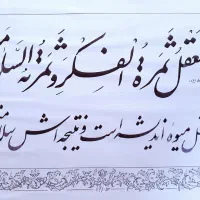 العقل ثمرة الفكر وثمرته السلا
عقل میوه اندیشه است و نتیجه اش سلا